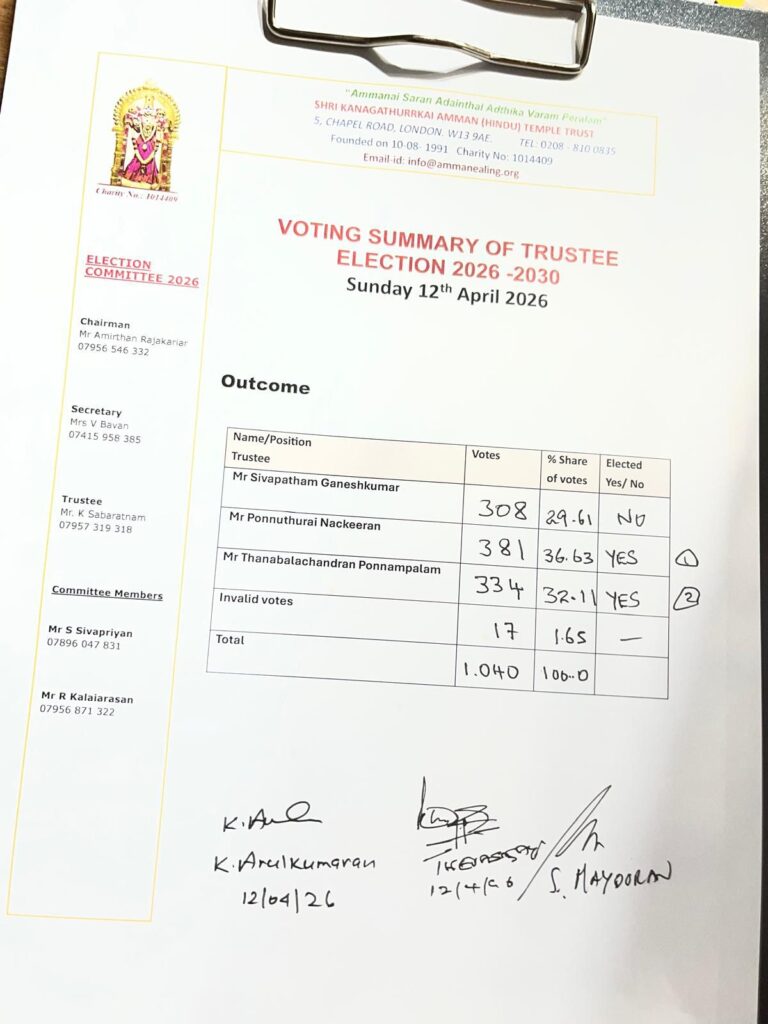 "Ammanai Saran Adainthal Adthika Varam Perulam"
SHRI KANAGATHURRKAI AMMAN (HINDU) TEMPLE TRUST
5, CHAPEL ROAD, LONDON. W13 9AE. TEL: 0208 - 810 0835
Founded on 10-08- 1991 Charity No: 1014409
Email-id: info@ammanealing.org
Charity No.: 1014409
ELECTION
COMMITTEE 2026
Chairman
Mr Amirthan Rajakariar
07956 546 332
Secretary
Mrs V Bavan
07415 958 385
Trustee
Mr. K Sabaratnam
07957 319 318
Committee Members
Mr S Sivapriyan
07896 047 831
Mr R Kalaiarasan
07956 871 322
VOTING SUMMARY OF TRUSTEE
ELECTION 2026 -2030
Sunday 12th April 2026
Outcome
Name/Position Trustee Votes % Share of votes Elected Yes/ No
Mr Sivapatham Ganeshkumar 308 29.61 NO
Mr Ponnuthurai Nackeeran 381 36.63 YES 1
Mr Thanabalachandran Ponnampalam 334 32.11 YES 2
Invalid votes 17 1.65 —
Total 1.040 100.0
K. Arulkumaran
12/04/26
12/4/26
S. MAYOORAN